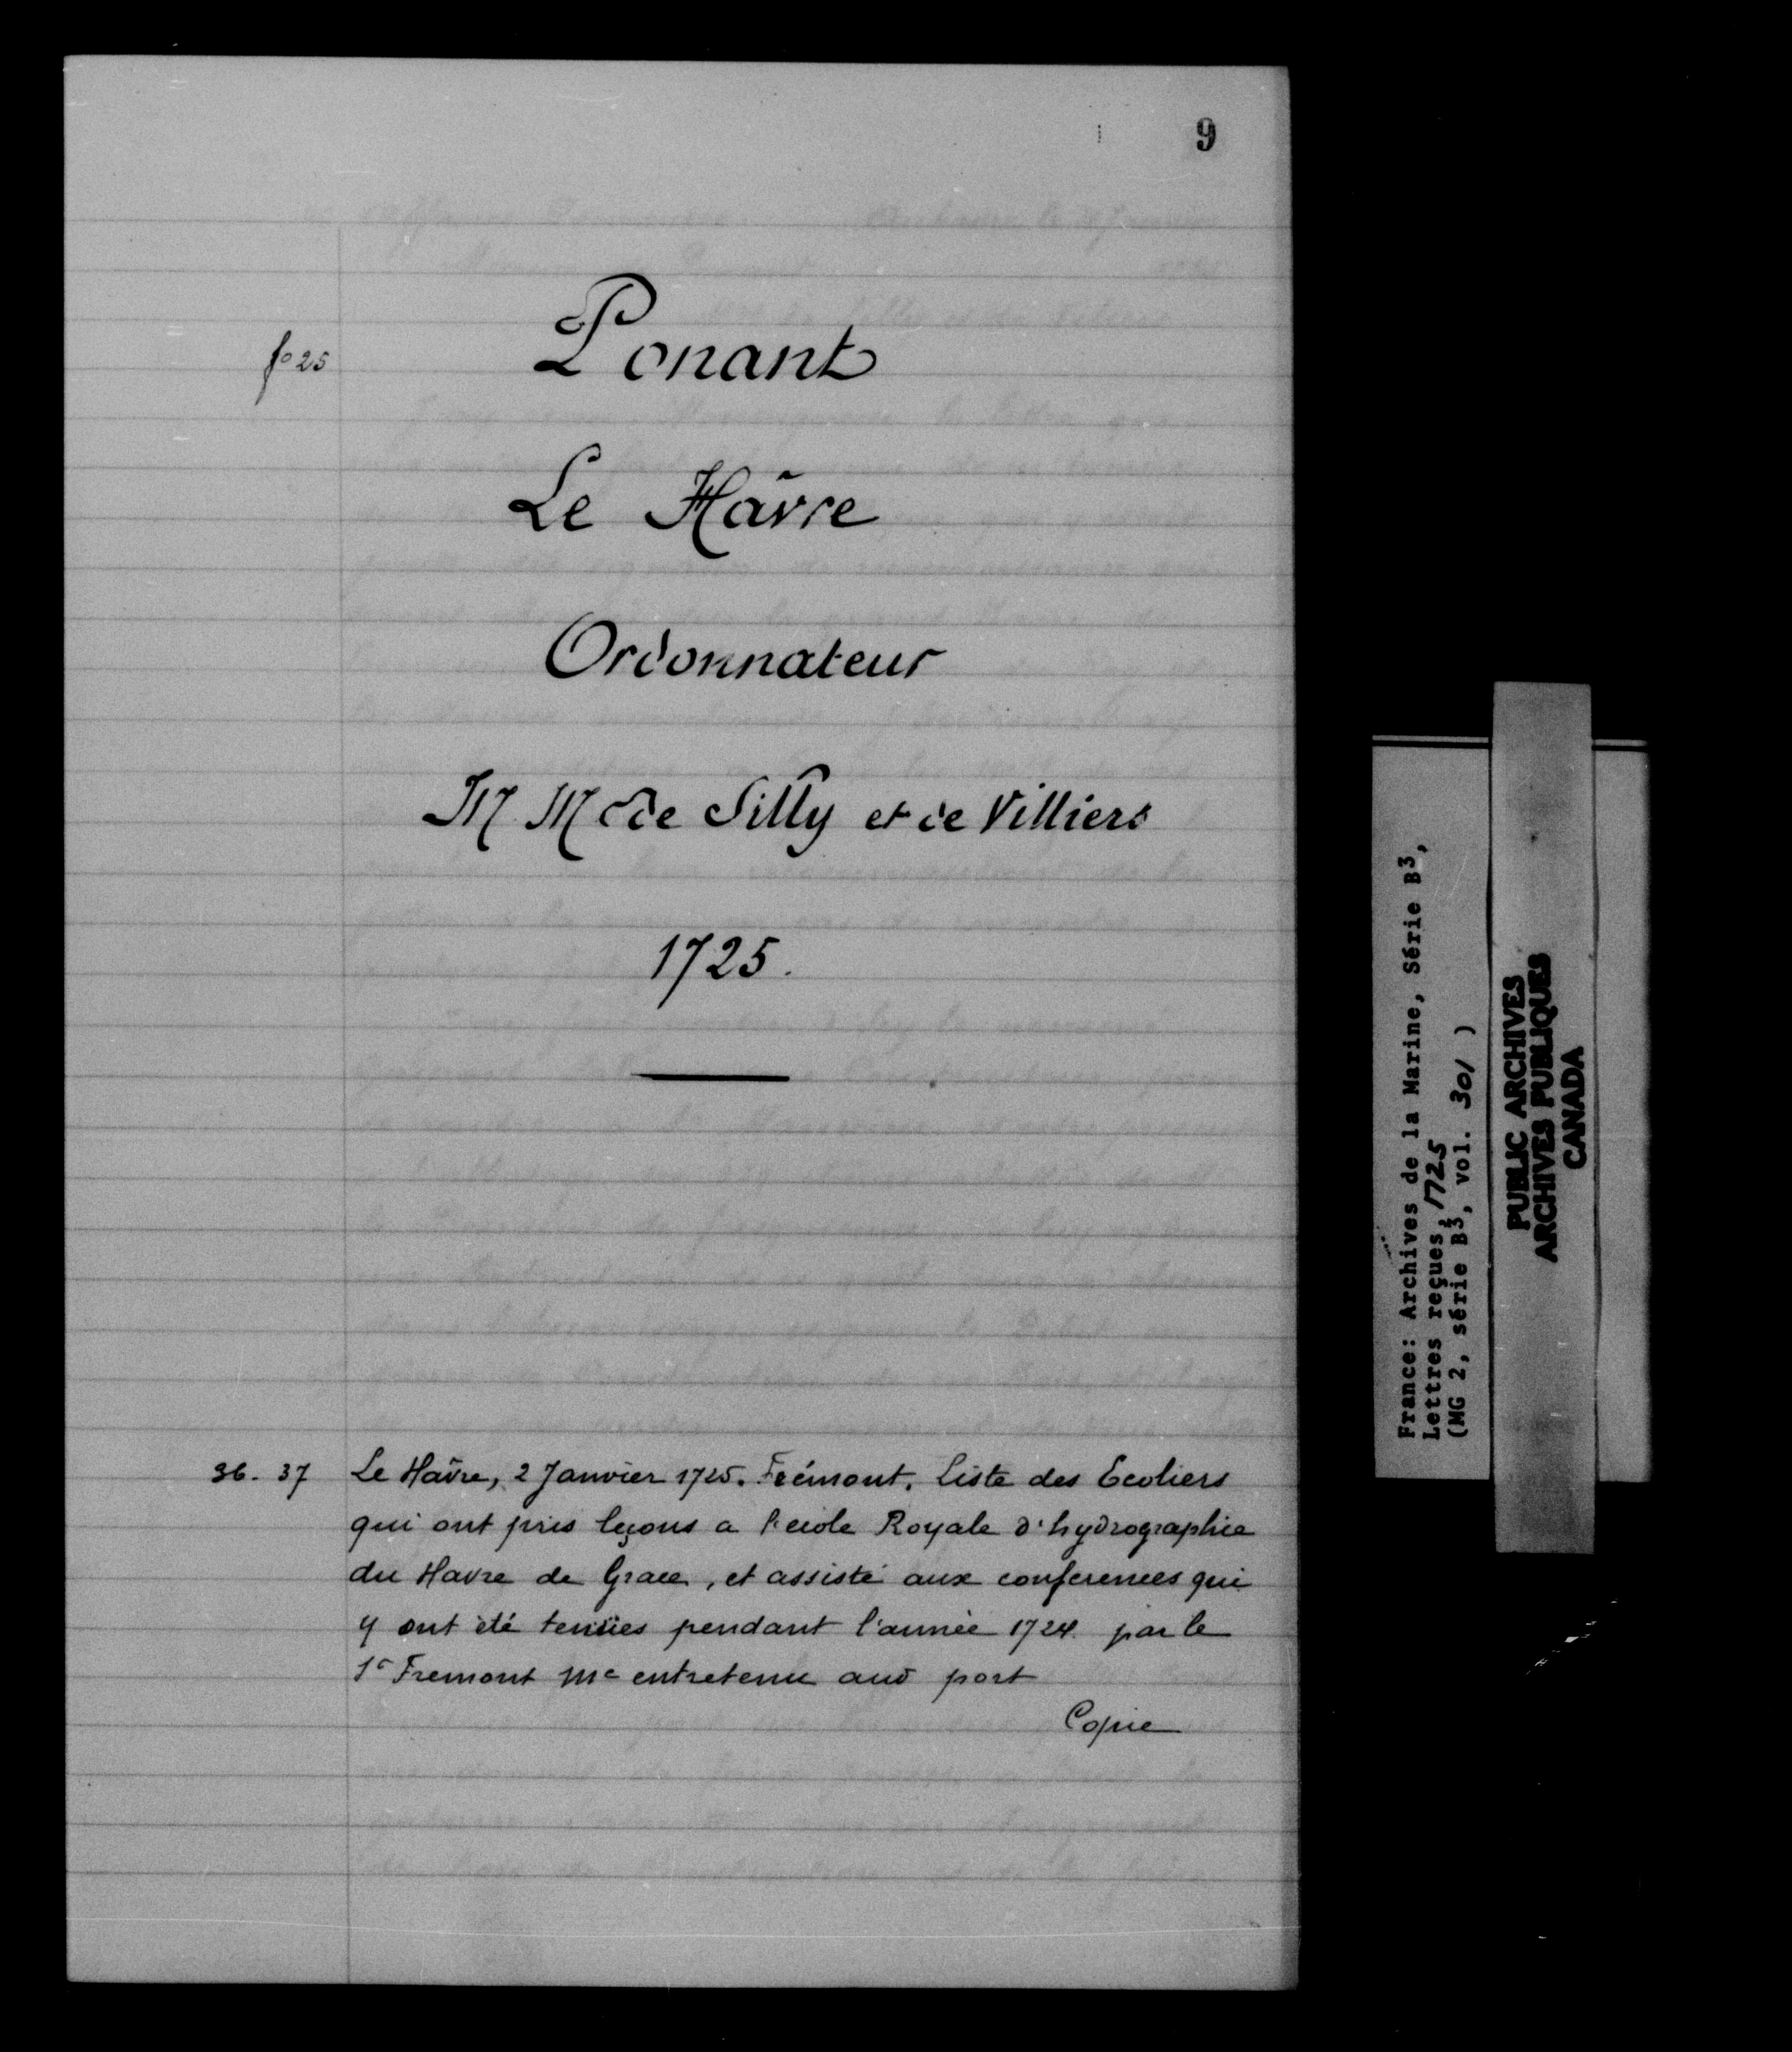 9
fo 25
Ponant
Le Hâvre
Ordonnateur
M M de Silly et de Villiers
1725.
36. 37
Le Hâvre, 2 Janvier 1725. Frémont. Liste des Ecoliers
qui ont pris leçons a l'ecole Royale d'hydrographie
du Havre de Grace, et assisté aux conferences qui
y ont été tenües pendant l'année 1724 par le
Sr Fremont Me entretenu aud port
Copie
France: Archives de la Marine, Série B3,
Lettres reçues, 1725
(MG 2, série B3, vol. 301 )
PUBLIC ARCHIVES
ARCHIVES PUBLIQUES
CANADA